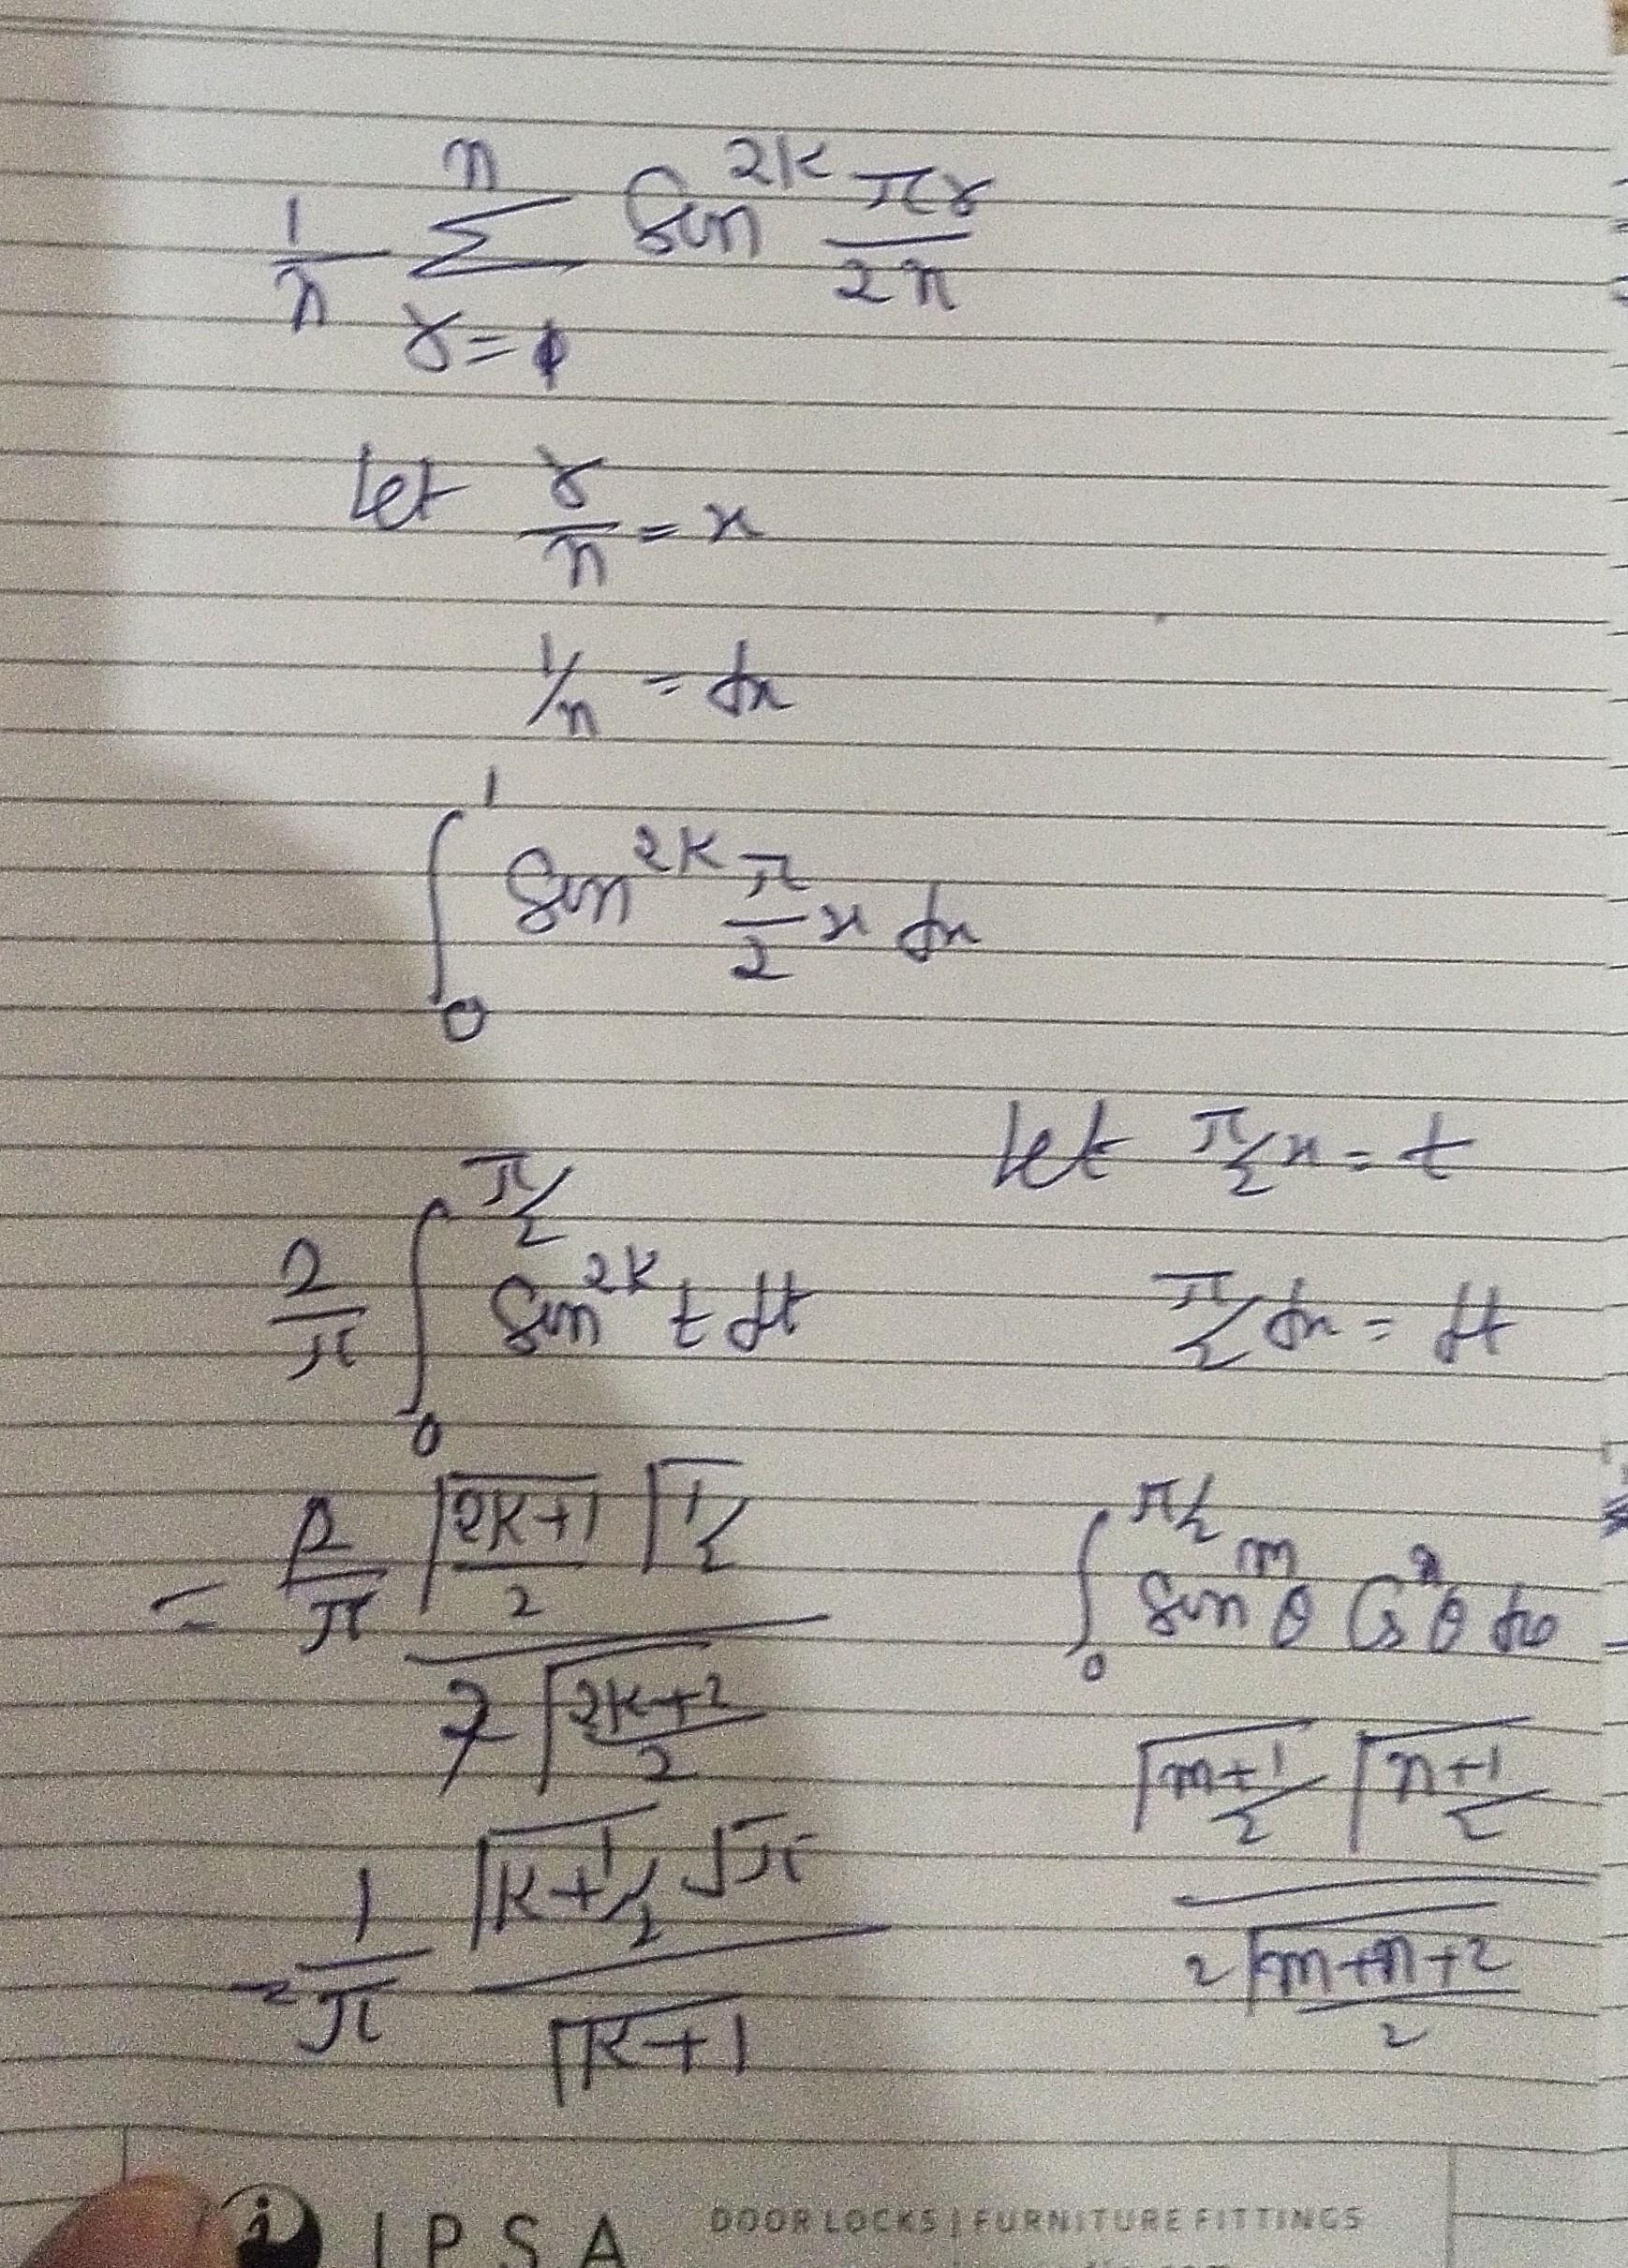 1/n Σ_{r=1}^{n} Sin^{2k} πr/2n
Let r/n = x
1/n = dx
∫_0^1 Sin^{2k} π/2 x dx
Let π/2 x = t
2/π ∫_0^{π/2} Sin^{2k} t dt
π/2 dx = dt
= 2/π Γ(2k+1/2) Γ(1/2) / 2 Γ(2k+2/2)
∫_0^{π/2} Sin^m θ Cos^n θ dθ
Γ(m+1/2) Γ(n+1/2) / 2 Γ(m+n+2/2)
= 1/π Γ(k+1/2) √π / Γ(k+1)
IPSA
DOOR LOCKS | FURNITURE FITTINGS